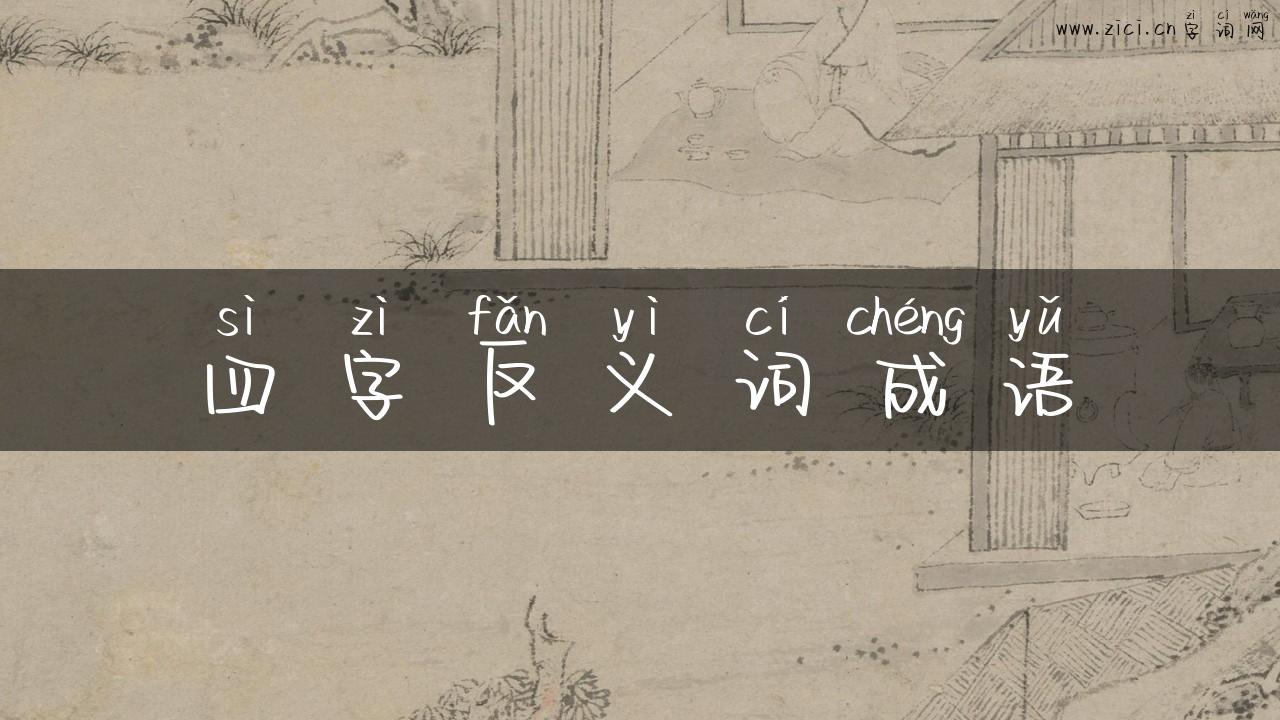 zì cí wǎng
www.zici.cn 字词网
sì zì fǎn yì cí chéng yǔ
四字反义词成语